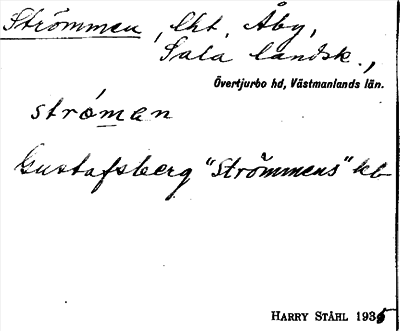 Strömmen, lht, Åby,
Sala landsk.,
Övertjurbo hd, Västmanlands län.
stróman
Gustafsberg "Strömmens" kb
HARRY STÅHL 1935